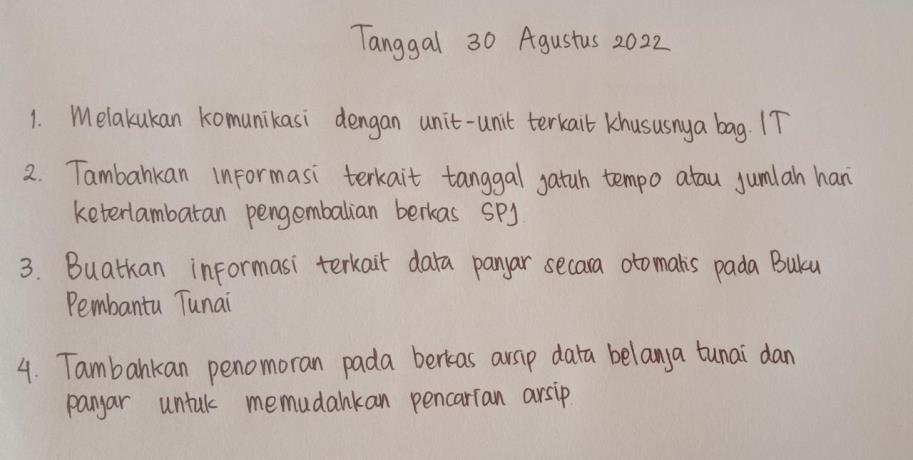 Tanggal 30 Agustus 2022
1. Melakukan komunikasi dengan unit-unit terkait khususnya bag. IT
2. Tambahkan informasi terkait tanggal jatuh tempo atau jumlah hari
keterlambatan pengembalian berkas SPJ
3. Buatkan informasi terkait data panjar secara otomatis pada Buku
Pembantu Tunai
4. Tambahkan penomoran pada berkas arsip data belanja tunai dan
panjar untuk memudahkan pencarian arsip.